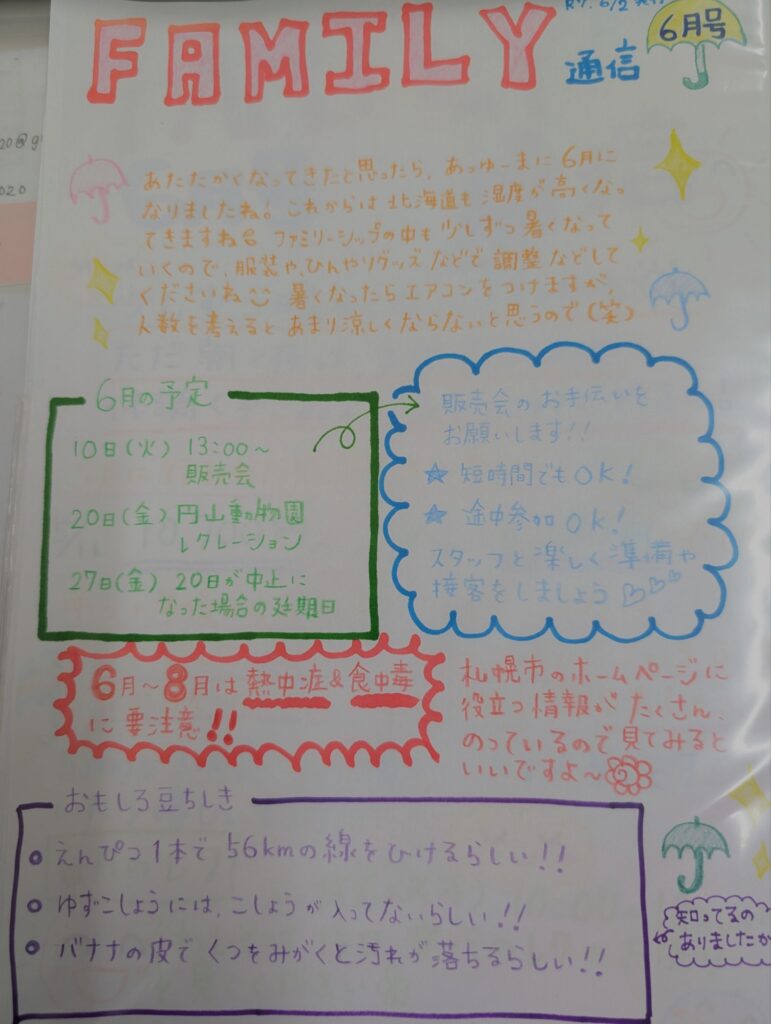 R7. 6/2 発行
6月号
FAMILY
通信
あたたかくなってきたと思ったら、あっゆーまに6月に
なりましたね! これからは北海道も湿度が高くなっ
てきますね ファミリーシップの中も少しずつ暑くなって
いくので、服装や、ひんやりグッズなどで調整などして
くださいね 暑くなったらエアコンをつけますが、
人数を考えるとあまり涼しくならないと思うので(笑)
6月の予定
10日(火) 13:00~
販売会
20日(金) 円山動物園
レクレーション
27日(金) 20日が中止に
なった場合の延期日
販売会のお手伝いを
お願いします!!
★ 短時間でもOK!
★ 途中参加OK!
スタッフと楽しく準備や
接客をしましょう♡♡♡
6月~8月は熱中症&食中毒
に要注意!!
札幌市のホームページに
役立つ情報がたくさん、
のっているので見てみると
いいですよ~
おもしろ豆ちしき
えんぴつ1本で56kmの線をひけるらしい!!
ゆずこしょうには、こしょうが入ってないらしい!!
バナナの皮でくつをみがくと汚れが落ちるらしい!!
知ってるの
ありましたか
20@g
020